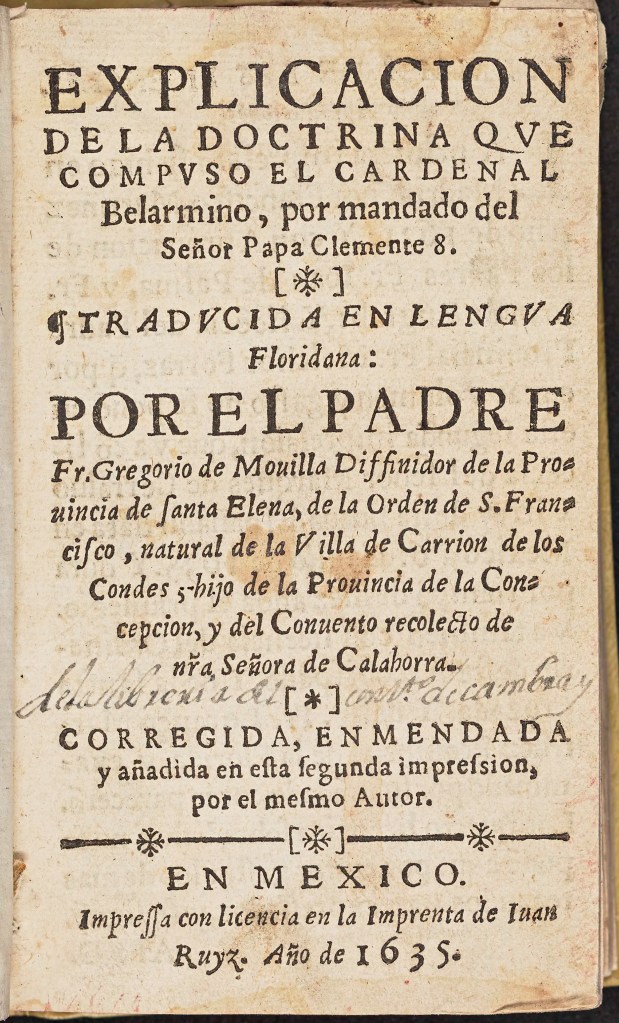 EXPLICACION
DE LA DOCTRINA QVE
COMPVSO EL CARDENAL
Belarmino, por mandado del
Señor Papa Clemente 8.
[*]
¶TRADVCIDA EN LENGVA
Floridana:
POR EL PADRE
Fr. Gregorio de Mouilla Diffinidor de la Pro=
uincia de ſanta Elena, de la Orden de S. Fran=
ciſco, natural de la Villa de Carrion de los
Condes, hijo de la Prouincia de la Con=
cepcion, y del Conuento recolecto de
nr̃a Señora de Calahorra.
de la libreria del [*] de cambray
CORREGIDA, ENMENDADA
y añadida en eſta ſegunda impreſsion,
por el meſmo Autor.
[*]
EN MEXICO.
Impreſſa con licencia en la Imprenta de Iuan
Ruyz. Año de 1635.